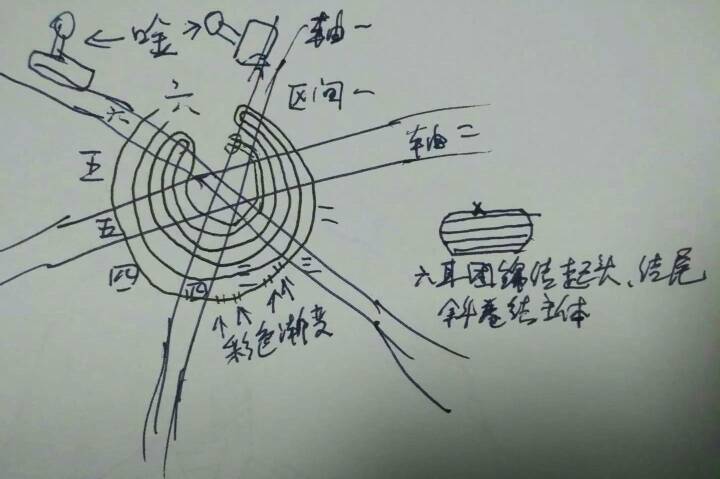 轴一
区间一
六
六
轴二
五
五
二
三
三
四
四
彩色渐变
六耳团锦结起头、结尾
斜卷结主体